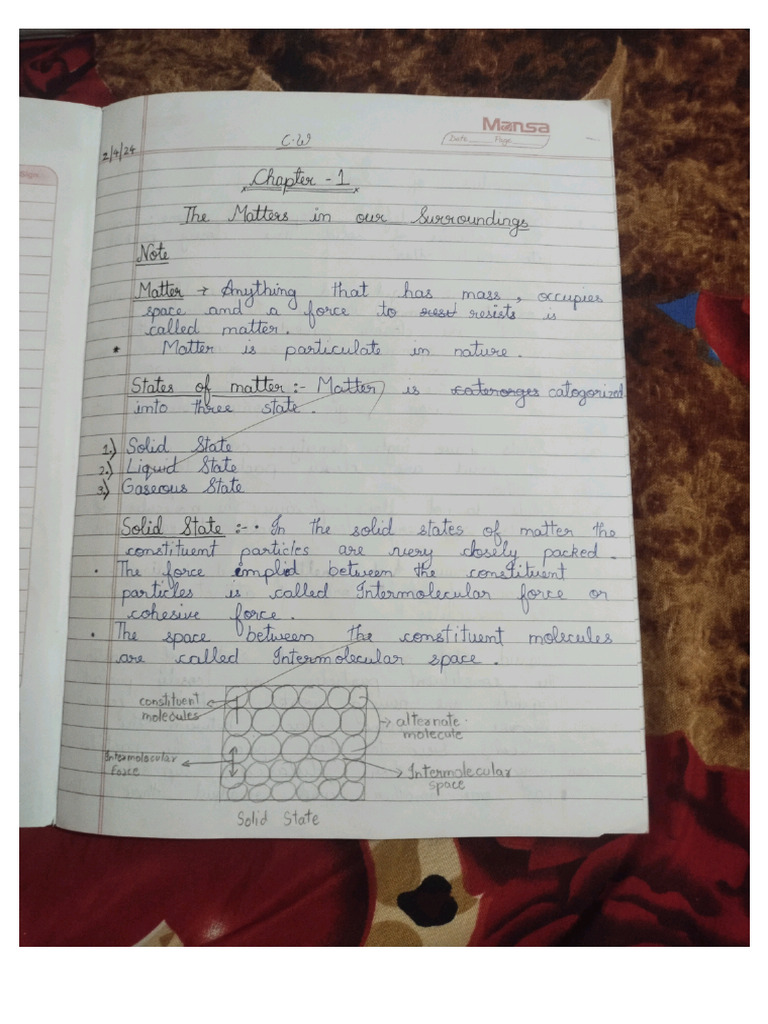 Mansa
Date Page
C.W
2/4/24
Chapter - 1
The Matters in our Surroundings
Note
Matter → Anything that has mass, occupies
space and a force to resists is
called matter.
* Matter is particulate in nature.
States of matter :- Matter is catogorized
into three state.
1.) Solid State
2.) Liquid State
3.) Gaseous State
Solid State :- • In the solid states of matter the
constituent particles are very closely packed.
• The force implid between the constituent
particles is called Intermolecular force or
cohesive force.
• The space between the constituent molecules
are called Intermolecular space.
constituent
molecules
alternate
molecule
Intermolecular
Force
Intermolecular
space
Solid State